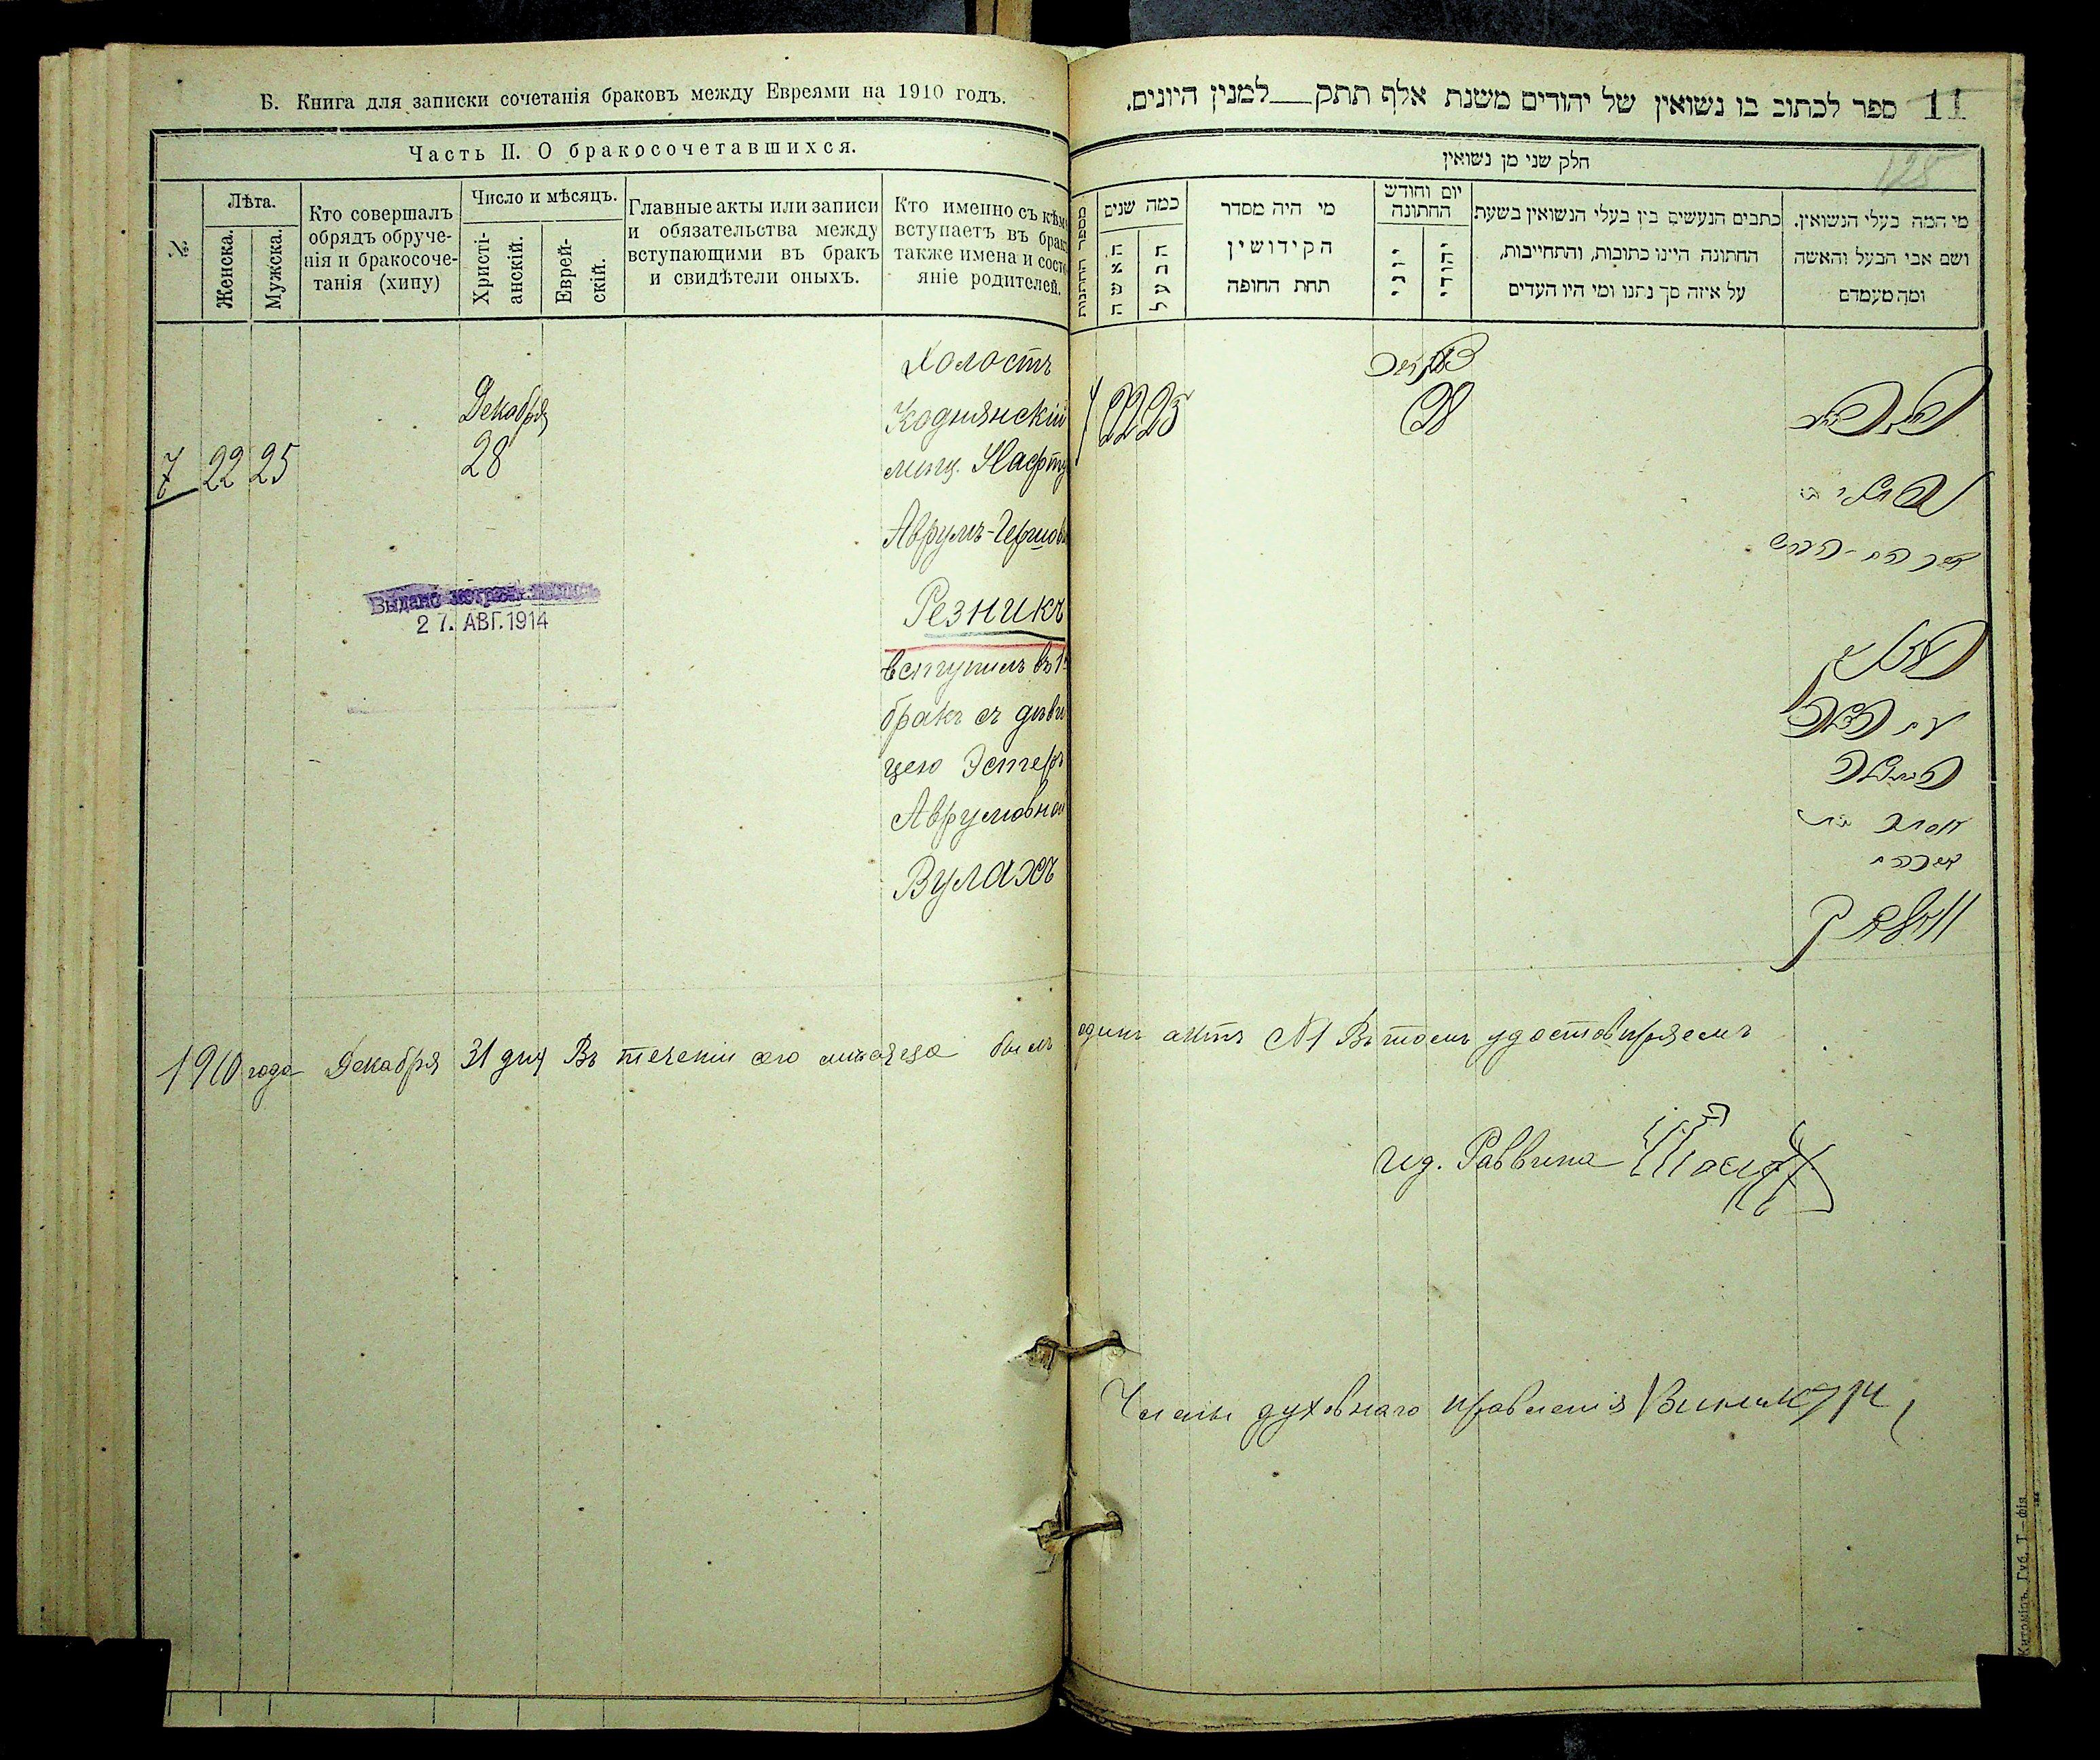 Б. Книга для записки сочетанія браковъ между Евреями на 1910 годъ.
Часть II. О бракосочетавшихся.
№
Лѣта.
Женска.
Мужска.
Кто совершалъ
обрядъ обруче-
нія и бракосоче-
танія (хипу)
Число и мѣсяцъ.
Христі-
анскій.
Еврей-
скій.
Главные акты или записи
и обязательства между
вступающими въ бракъ
и свидѣтели оныхъ.
Кто именно съ кѣмъ
вступаетъ въ бракъ
также имена и состо-
яніе родителей.
7
22
25
Декабря
28
Холостъ
Коднянскій
мѣщ. Нафту
Аврумъ-Герщов
Резникъ
вступилъ въ 1
бракъ съ дѣви
цею Эстеръ
Аврумовной
Вулахъ
Выдано
27. АВГ. 1914
11 ספר לכתוב בו נשואין של יהודים משנת אלף תתק למנין היונים.
125
חלק שני מן נשואין
מספר החתונות
כמה שנים
האשה
הבעל
מי היה מסדר
הקידושין
תחת החופה
יום וחודש
החתונה
יוני
יהודי
כתבים הנעשים בין בעלי הנשואין בשעת
החתונה היינו כתובות, והתחייבות,
על איזה סך נתנו ומי היו העדים
מי המה בעלי הנשואין.
ושם אבי הבעל והאשה
ומה מעמדם
7
22
25
28
1910 года Декабря 31 дня Въ теченіи сего мѣсяца былъ одинъ актъ №1 Въ томъ удостовѣряемъ
ид. Раввина
Члены духовнаго правленія
Губ. Т—фія